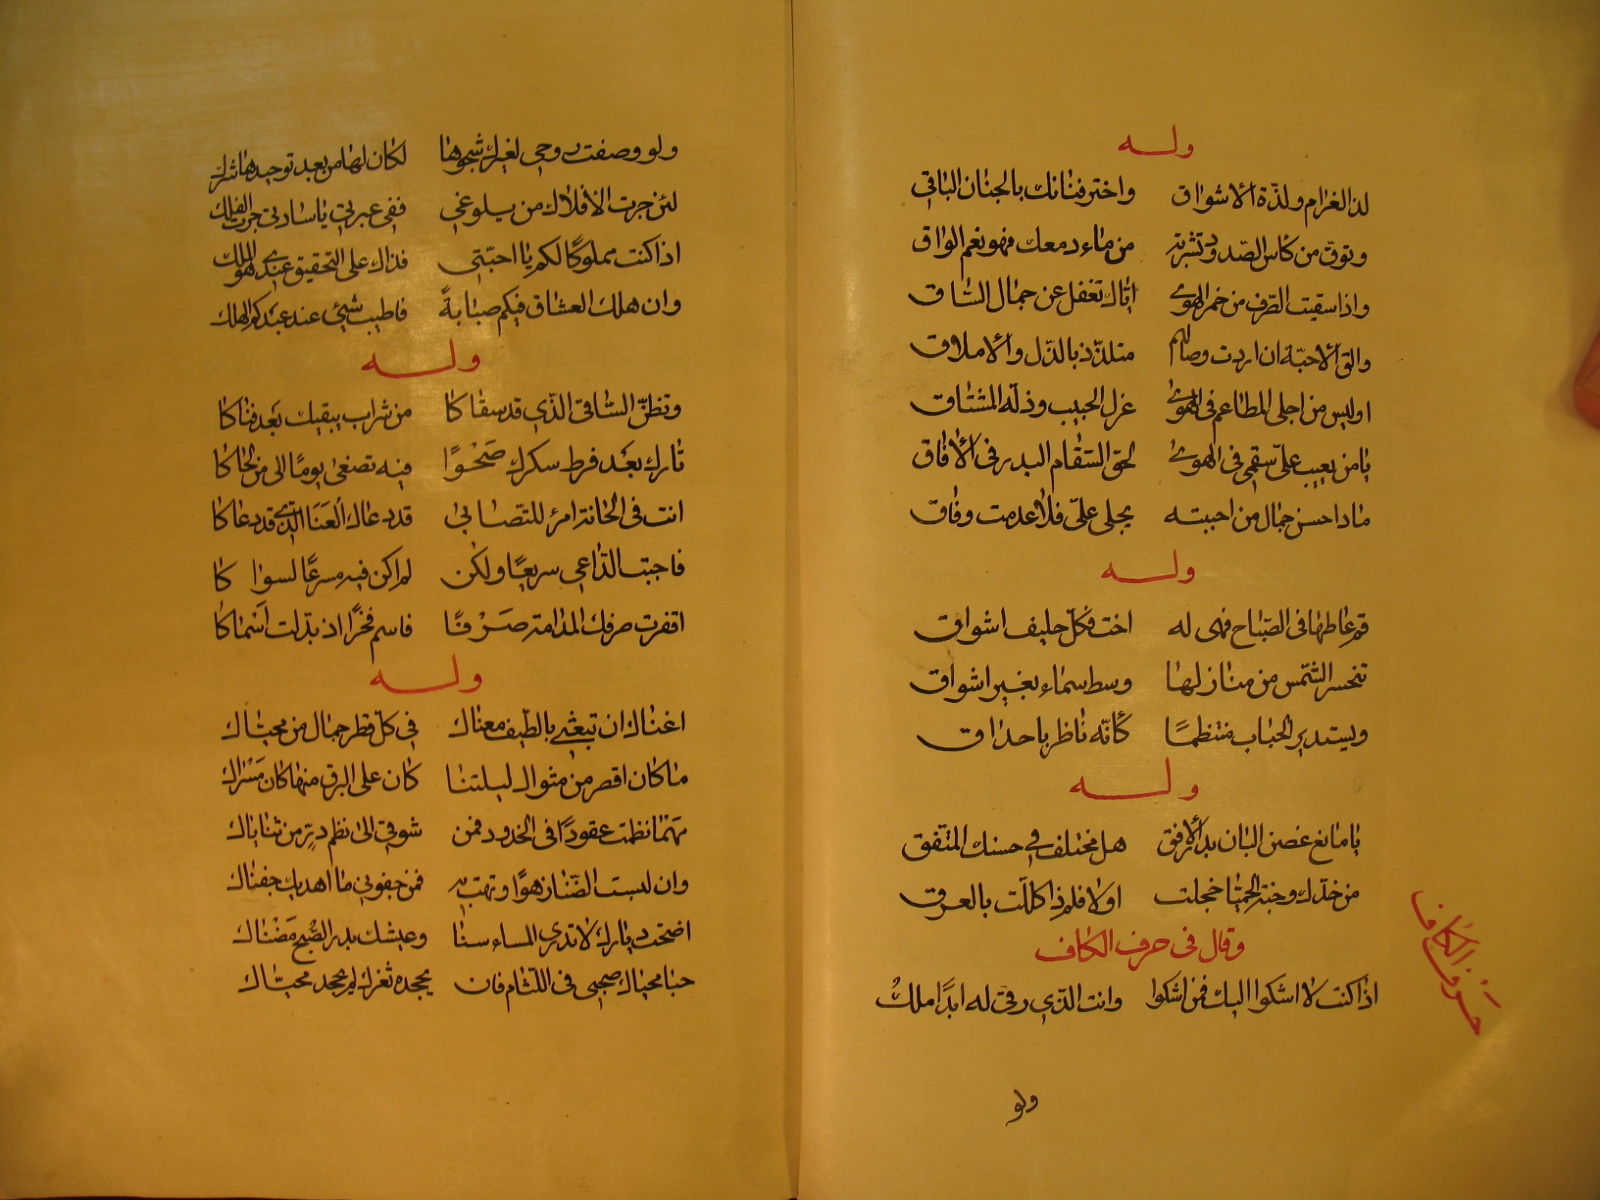 وله
لذ الغرام ولذة الاشواق واختر فنائك بالجنان الباقي
وتوق من كاس الصدود وشربة من ماء دمعك فهو نعم الواق
واذا سقيت الصرف من خمر الهوى اياك تغفل عن جمال الساق
والق الاحبة ان اردت وصالهم متلذذ بالذل والاملاق
اوليس من احلى المطاعم في الهوى غزل الحبيب وذلة المشتاق
يا من يعيب على سقمي في الهوى لحق السقام البدر في الافاق
ماذا حسن جمال من احببته يجلى على فلا عدمت وفاق
وله
قم عاطها في الصباح فهى له اخت فكل حليف اشواق
تنحسر الشمس من منازلها وسط سماء بغير اشواق
ويستدير الحباب منتظما كأنه ناظر باحداق
وله
يا مايع غصن البان بدا لارفق هل مختلف في حسنك المتفق
من خدك وجنة الحميا خجلت اولا فلم ذا كللت بالعرق
وقال في حرف الكاف
حرف الكاف
اذا كنت لا اشكوا اليك فمن اشكوا وانت الذي رقى له ابدا ملك
ولو
ولو وصفت روحي لغيرك شجوها لكان لها من بعد توحيدها شرك
لئن جرت الأفلاك من يلوغي ففي عبرتي يا سادتي جرت الفلك
اذا كنت مملوكا لكم يا احبتي فذاك على التحقيق عندى هو الملك
وان هلك العشاق فيكم صبابة فاطيب شيئ عند عبدكم الهلك
وله
وتظن الساقي الذي قد سقاكا من شراب يبقيك بعد فناكا
تارك بعد فرط سكرك صحوا فبه تصغى يوما الى من لحاكا
انت في الحانة امرؤ للتصابي قد دعاك العنا الذي قد دعاكا
فاجبت الداعي سريعا ولكن لم اكن فيه مسرعا لسوا كا
اقفرت صرفك المدامة صرفا فاسم فخرا اذ بدلت اسماكا
وله
اغناك ان تبعثي بالطيف معناك في كل قطر جمال من محياك
ما كان اقصر من مثواك ليلتنا كان على البرق منها كان مسراك
مهما نظمت عقودا في الخدود فمن شوقي الى نظم در من ثناياك
وان لبست الضنا زهوا وتهت به فمن جفوني ما اهديك جفناك
اضحت ديارك لا تدرى المساء سنا وعيشك بدر الصبح مضناك
حبا محياك صحبي في اللثام فان يجحده ثغرك لم يجحد محياك